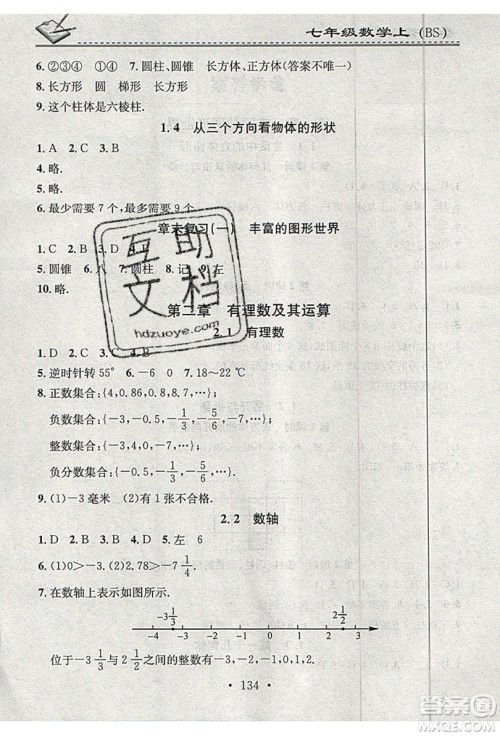 七年级数学上(BS)
6.②③④ ①④ 7.圆柱、圆锥 长方体、正方体(答案不唯一)
8.长方形 圆 梯形 长方形
9.这个柱体是六棱柱.
1.4 从三个方向看物体的形状
1.A 2.C 3.B
4.略.
5.略.
6.最少需要7个,最多需要9个.
章末复习(一) 丰富的图形世界
1.D 2.C
5.圆锥 6.八 7.圆柱 8.记 9.左
10.略.
第二章 有理数及其运算
2.1 有理数
1.D 2.A
5.逆时针转55° 6.-6 0 7.18~22℃
8.正数集合:{4,0.86,2,…};
负数集合:{-3,-0.5,-1/3,-5 1/6,…};
整数集合:{4,-3,0,2,…};
负分数集合:{-0.5,-1/3,-5 1/6,…}.
9.(1)-3毫米 (2)有1张不合格.
2.2 数轴
1.D 2.B 3.A 4.D 5.左 6
6.(1)0>-4. (2)2.78>-10.
7.在数轴上表示如图所示.
-3 1/3 2 1/2
-4 -3 -2 -1 0 1 2 3
位于-3 1/3与2 1/2之间的整数有-3,-2,-1,0,1,2.
·134·
互助文档
hdzuoye.com
答案圈